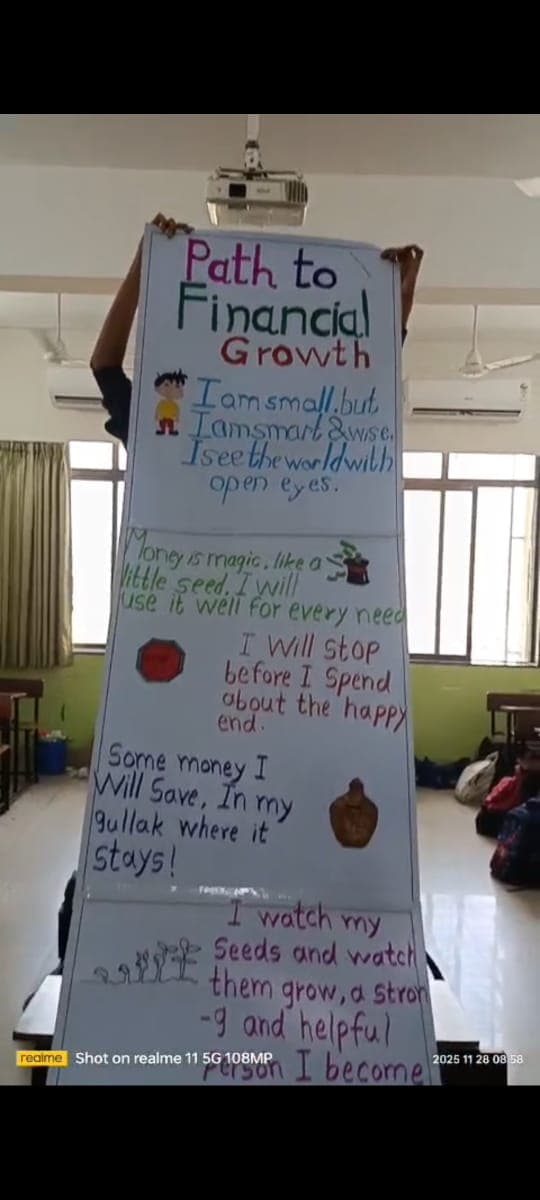 Path to
Financial
Growth
I am small, but
I am smart & wise.
I see the world with
open eyes.
Money is magic, like a
little seed. I will
use it well for every need
I Will stop
before I Spend
about the happy
end.
Some money I
Will Save, In my
gullak where it
stays!
I watch my
Seeds and watch
them grow, a stron
-g and helpful
person I become
realme Shot on realme 11 5G 108MP
2025 11 28 08:58